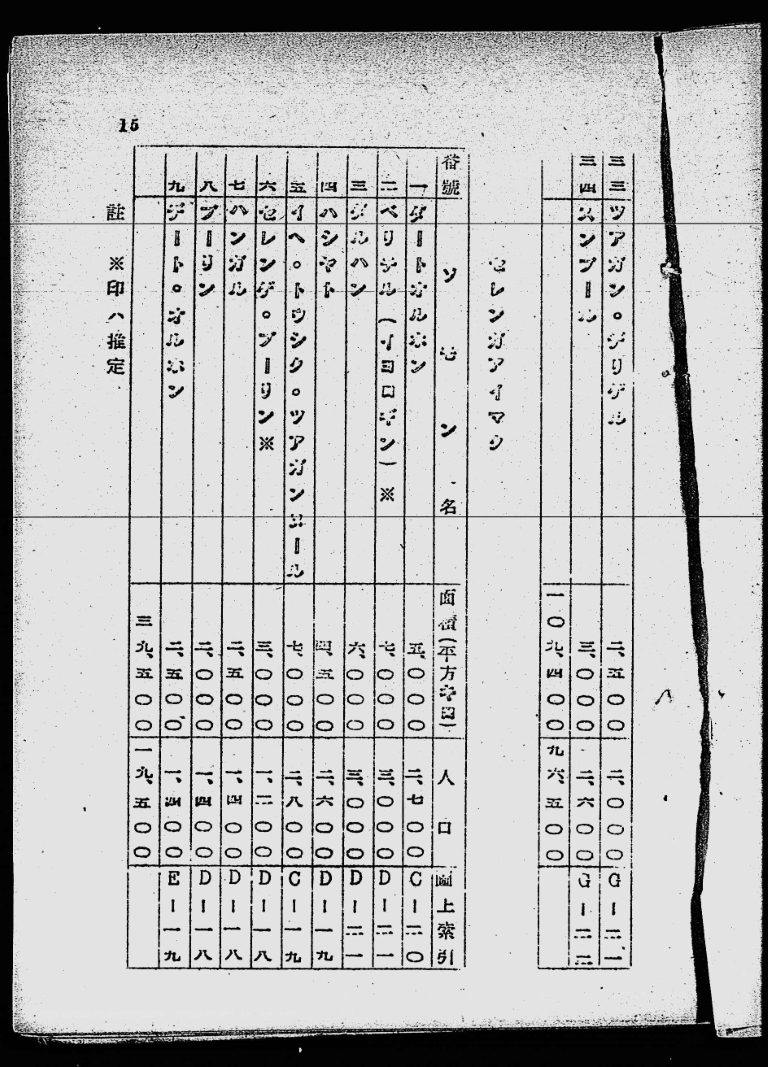 15
三三 ツアガン。デリゲル 二、五〇〇 二、〇〇〇 G－二一
三四 スンブール 三、〇〇〇 二、六〇〇 G－二二
一〇九、四〇〇 九六、五〇〇
セレンガアイマク
番號 ソモン名 面積(平方キロ) 人口 圖上索引
一 ダートオルホン 五、〇〇〇 二、七〇〇 C－二〇
二 ベリチル(イヨロギン)※ 七、〇〇〇 三、〇〇〇 D－二一
三 ダルハン 六、〇〇〇 三、〇〇〇 D－二一
四 ハシヤト 四、五〇〇 二、六〇〇 D－一九
五 イヘ。トウシク。ツアガンヌール 七、〇〇〇 二、八〇〇 C－一九
六 セレンゲ。ブーリン※ 三、〇〇〇 一、二〇〇 D－一八
七 ハンガル 二、五〇〇 一、四〇〇 D－一八
八 ブーリン 二、〇〇〇 一、四〇〇 D－一八
九 デート。オルホン 二、五〇〇 一、四〇〇 E－一九
三九、五〇〇 一九、五〇〇
註 ※印ハ推定